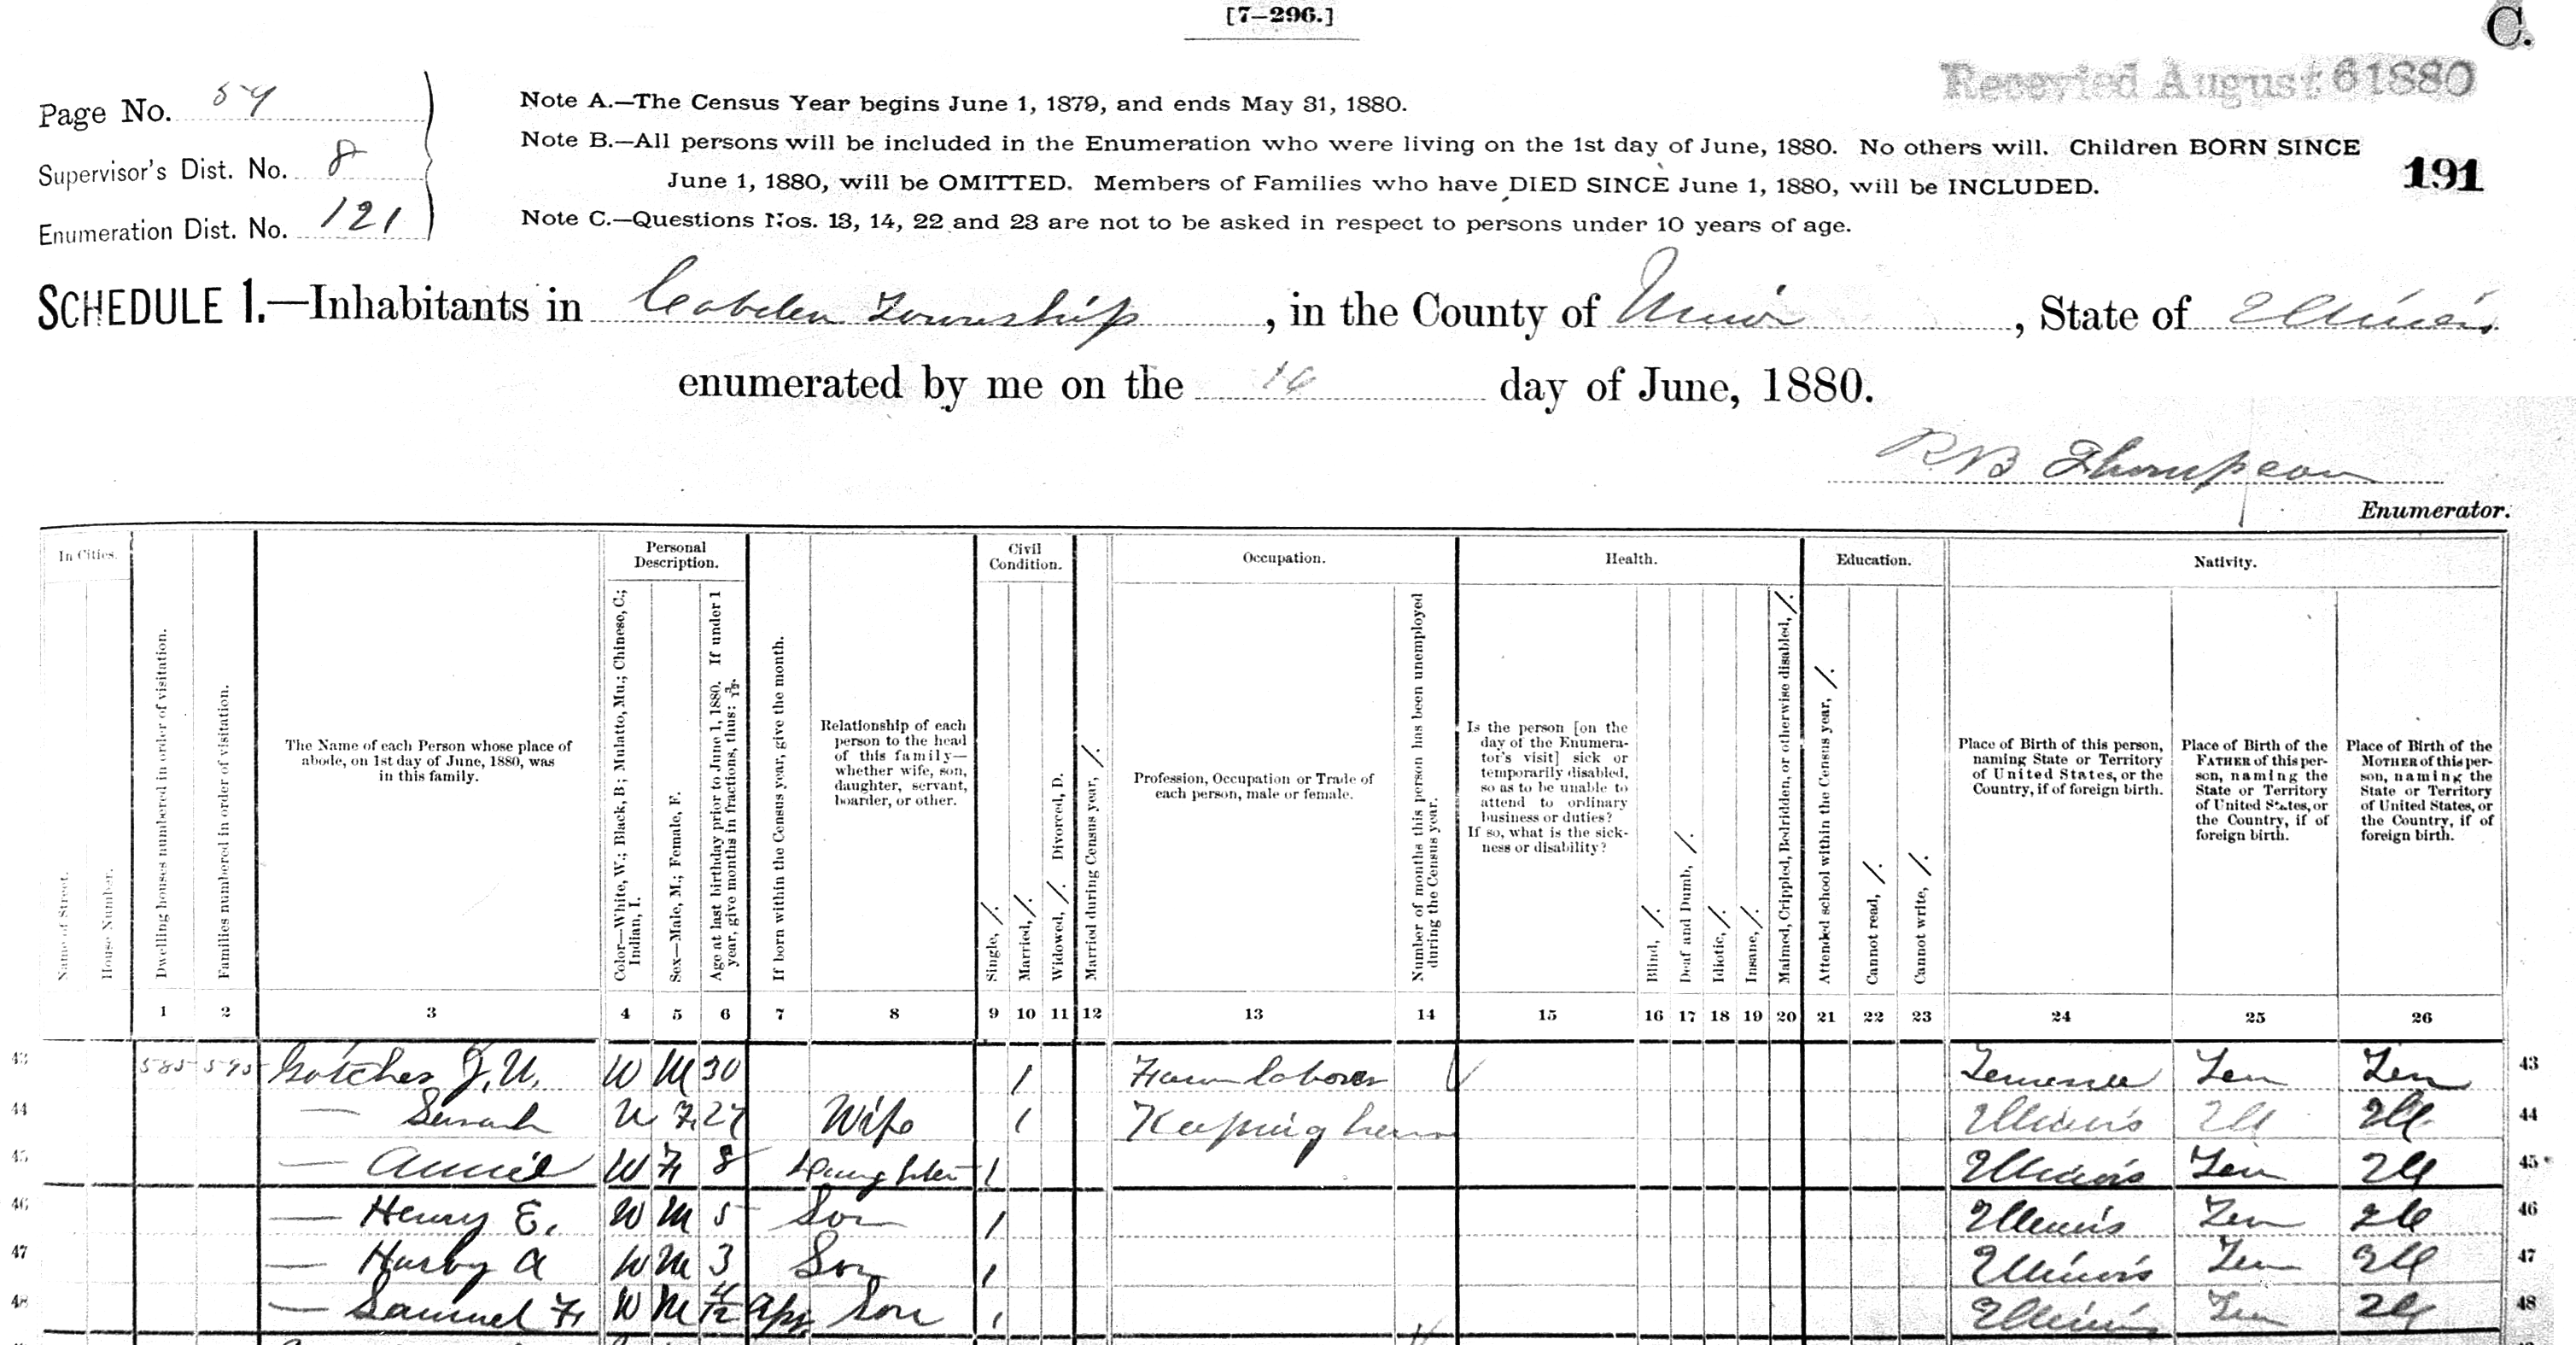 [7–296.]
C.
Receyried August 6 1880
Page No. 54
Supervisor's Dist. No. 8
Enumeration Dist. No. 121
Note A.—The Census Year begins June 1, 1879, and ends May 31, 1880.
Note B.—All persons will be included in the Enumeration who were living on the 1st day of June, 1880. No others will. Children BORN SINCE
June 1, 1880, will be OMITTED. Members of Families who have DIED SINCE June 1, 1880, will be INCLUDED.
Note C.—Questions Nos. 13, 14, 22 and 23 are not to be asked in respect to persons under 10 years of age.
191
SCHEDULE 1.—Inhabitants in Cobden Township, in the County of Union, State of Illinois
enumerated by me on the 16 day of June, 1880.
R B Thompson
Enumerator.
In Cities.
Name of Street.
House Number.
Dwelling houses numbered in order of visitation.
Families numbered in order of visitation.
The Name of each Person whose place of
abode, on 1st day of June, 1880, was
in this family.
Personal
Description.
Color—White, W.; Black, B; Mulatto, Mu.; Chinese, C.;
Indian, I.
Sex—Male, M.; Female, F.
Age at last birthday prior to June 1, 1880. If under 1
year, give months in fractions, thus: 3/12.
If born within the Census year, give the month.
Relationship of each
person to the head
of this family—
whether wife, son,
daughter, servant,
boarder, or other.
Civil
Condition.
Single, /.
Married, /.
Widowed, /. Divorced, D.
Married during Census year, /.
Occupation.
Profession, Occupation or Trade of
each person, male or female.
Number of months this person has been unemployed
during the Census year.
Health.
Is the person [on the
day of the Enumera-
tor's visit] sick or
temporarily disabled,
so as to be unable to
attend to ordinary
business or duties?
If so, what is the sick-
ness or disability?
Blind, /.
Deaf and Dumb, /.
Idiotic, /.
Insane, /.
Maimed, Crippled, Bedridden, or otherwise disabled, /.
Education.
Attended school within the Census year, /.
Cannot read, /.
Cannot write, /.
Nativity.
Place of Birth of this person,
naming State or Territory
of United States, or the
Country, if of foreign birth.
Place of Birth of the
FATHER of this per-
son, naming the
State or Territory
of United States, or
the Country, if of
foreign birth.
Place of Birth of the
MOTHER of this per-
son, naming the
State or Territory
of United States, or
the Country, if of
foreign birth.
1 2 3 4 5 6 7 8 9 10 11 12 13 14 15 16 17 18 19 20 21 22 23 24 25 26
43 585 595 Gotcher J. U. W M 30 / Farm laborer Tennessee Ten Ten 43
44 — Sarah W F 27 Wife / Keeping house Illinois Ill Ill 44
45 — Annie W F 8 Daughter / Illinois Ten Ill 45
46 — Henry E. W M 5 Son / Illinois Ten Ill 46
47 — Harby A W M 3 Son / Illinois Ten Ill 47
48 — Samuel F W M 4/12 Apr Son / Illinois Ten Ill 48